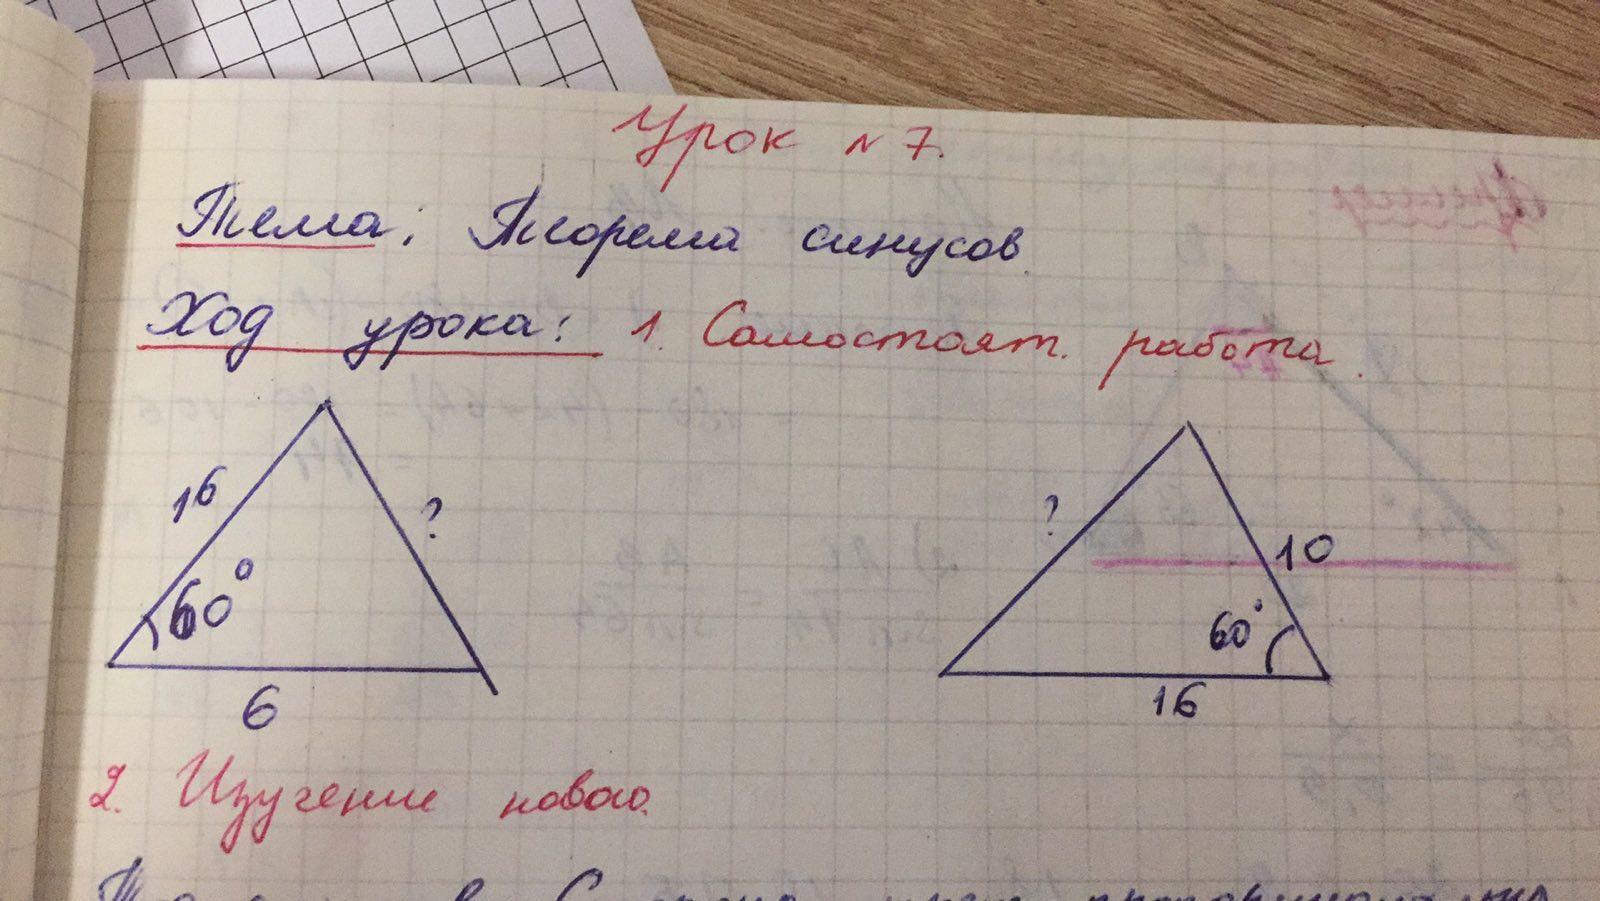 Урок № 7.
Тема: Теорема синусов.
Ход урока: 1. Самостоят. работа.
16
?
60°
6
?
10
60°
16
2. Изучение нового.